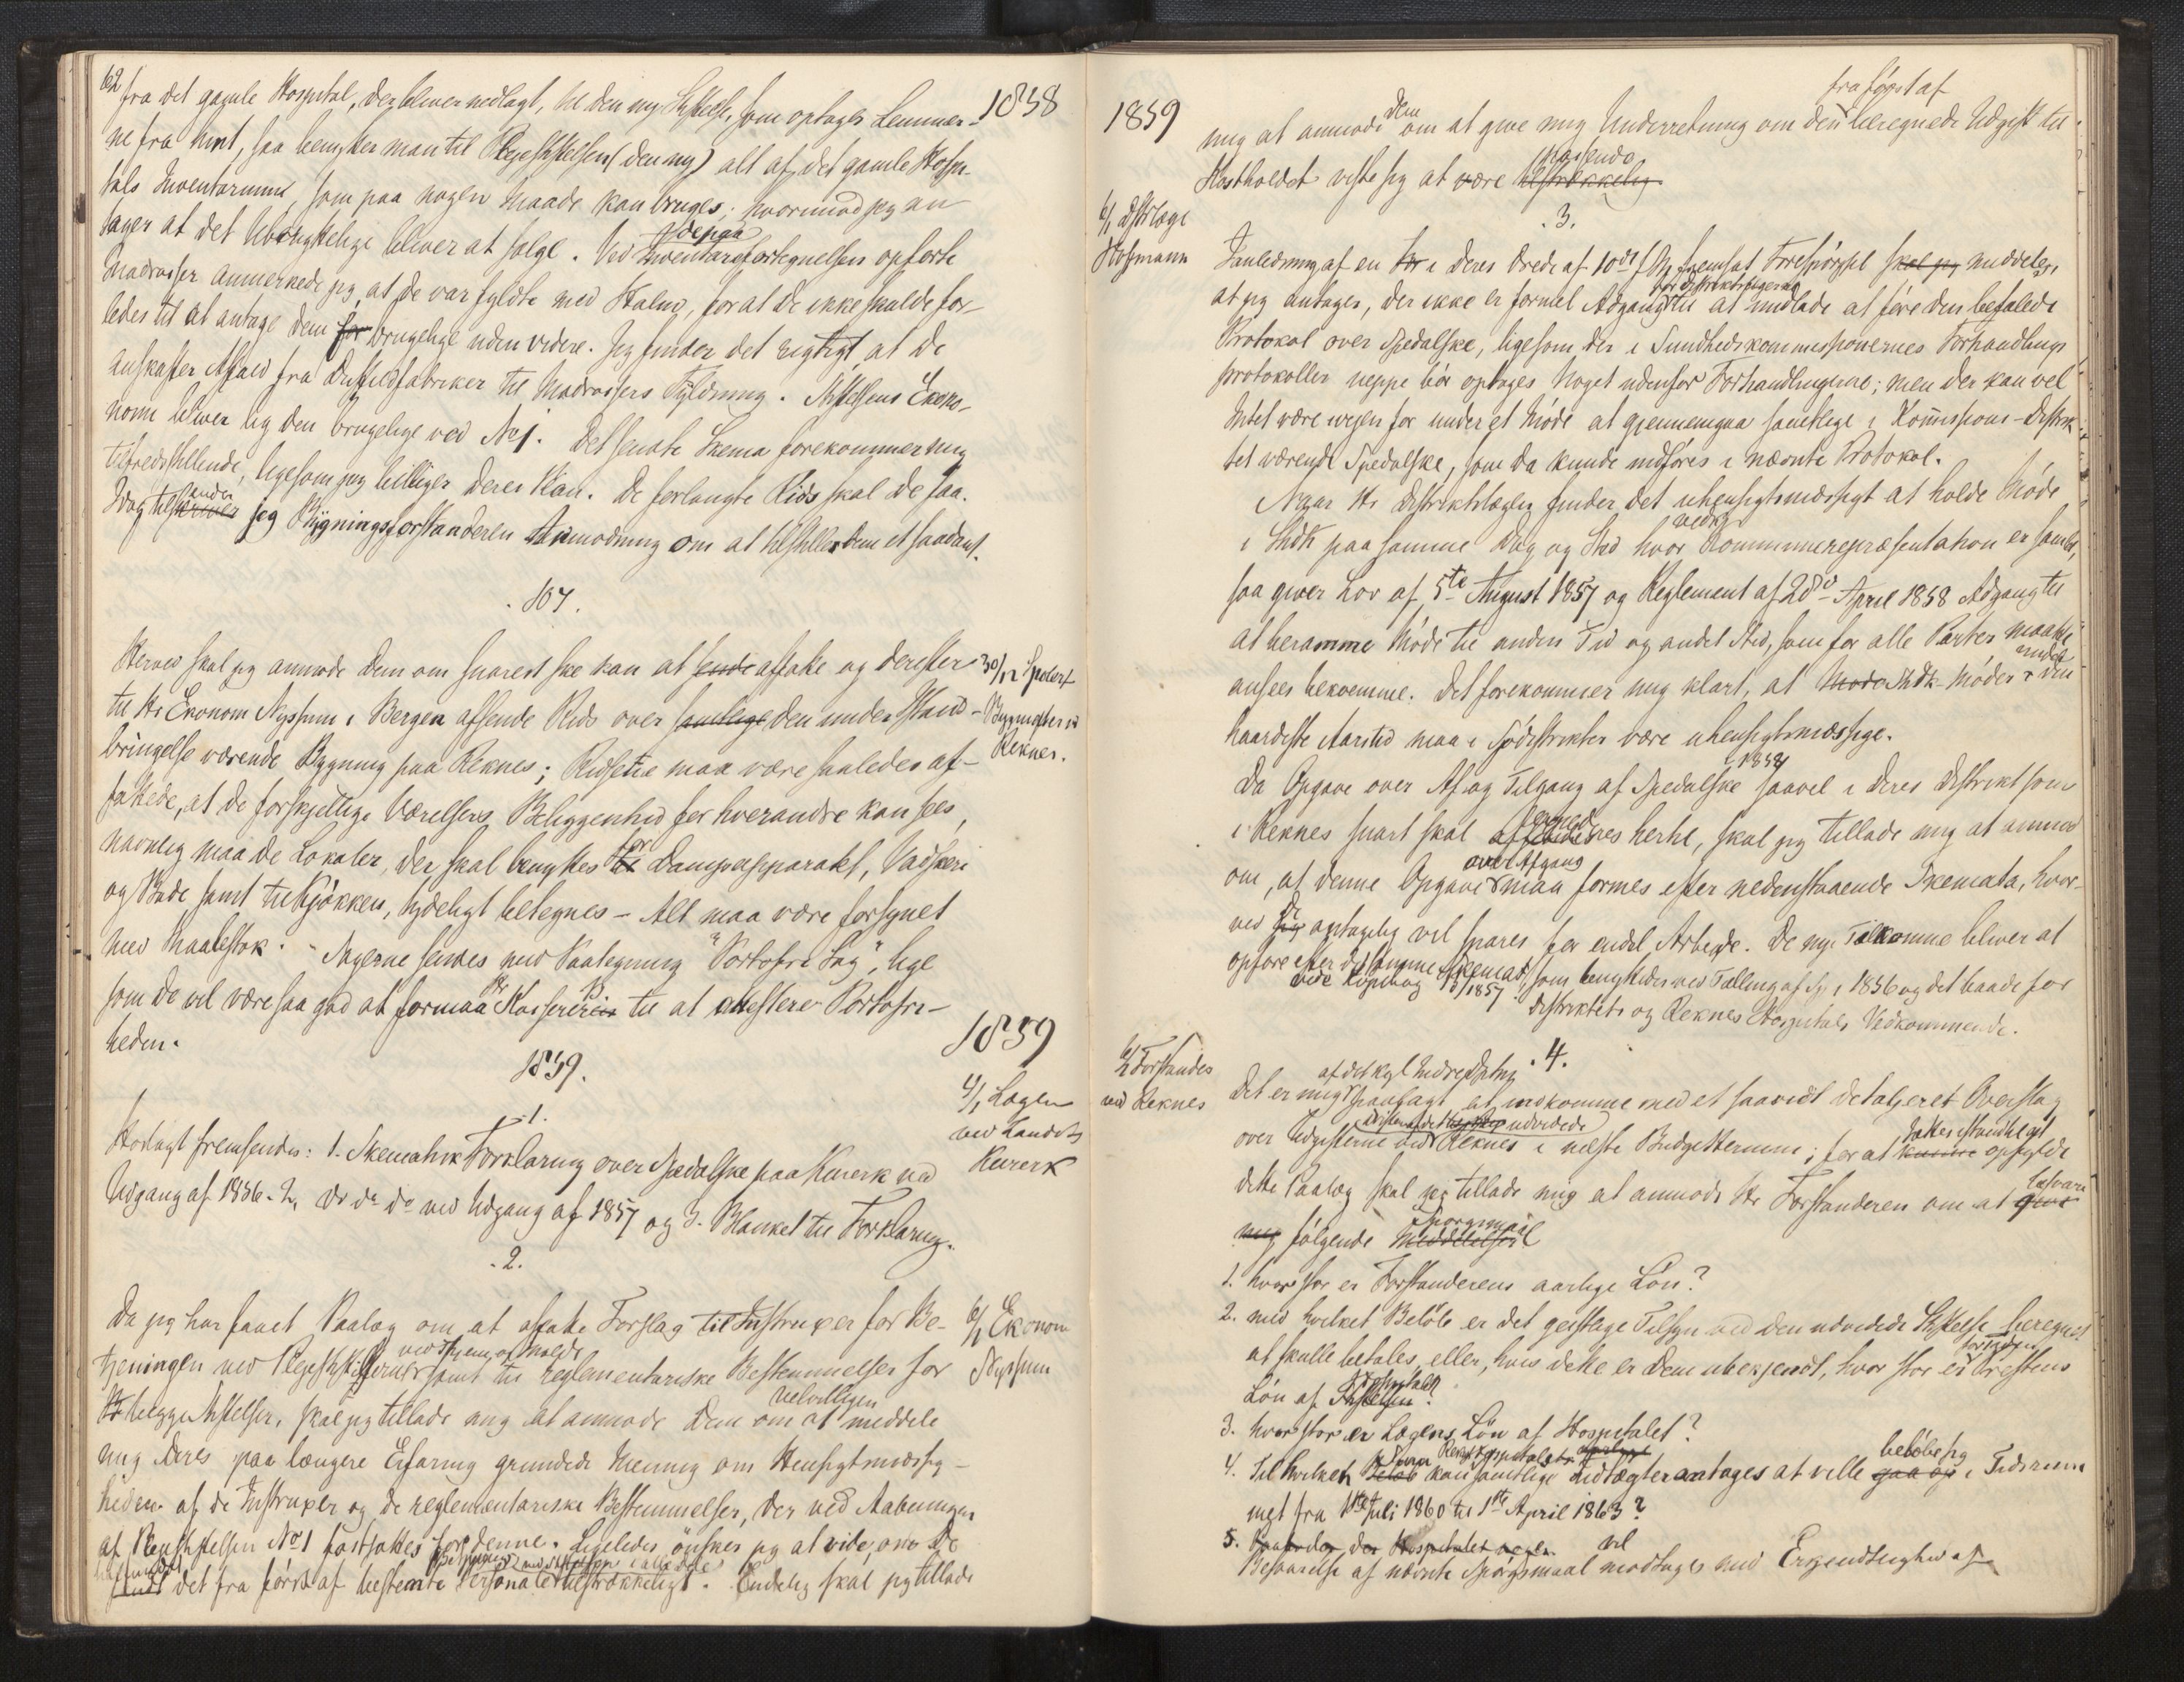 62
1858
fra det gamle Hospital, der bliver nedlagt, til den ny Stiftelse, som optager Lemmer-
ne fra hint, saa benytter man til Plejestiftelsen (den ny) alt af det gamle Hospi-
tals Inventarium, som paa nogen Maade kan bruges; hvorimod jeg an-
tager at det Ubenyttelige bliver at sælge. Ved de paa Inventarefortegnelsen opførte
Madrasser anmerkede jeg, at de var fyldte med Halm, for at De ikke skulde for-
ledes til at antage dem for brugelige uden videre. Jeg finder det rigtigt, at De
anskaffer Affald fra Duffelsfabriker til Madrassers Fyldning. Stiftelsens Ekono-
nomi bliver lig den brugelige ved No 1. Det sendte Skema forekommer mig
tilfredsstillende, ligesom jeg billiger Deres Plan. De forlangte Rids skal De faa.
Idag tilsender skriver jeg Bygningsforstanderen Anmodning om at tilstille Dem et saadant.
. 107.
30/12 Spelert
Bygmester v
Reknes.
Herved skal jeg anmode Dem om snarest ske kan at sende affatte og derefter
til Hr Ekonom Nyssum i Bergen afsende Rids over samtlige den under Istand-
bringelse værende Bygning paa Reknes; Ridsene maa være saaledes af-
fattede, at de forskjellige Værelsers Beliggenhed for hverandre kan sees,
navnlig maa de Lokaler, der skal benyttes til for Dampapparatet, Vadskeri
og Bade samt til Kjøkken, tydeligt betegnes - Alt maa være forsynet
med Maalestok. - Sagerne sendes med Paategning "Portofri Sag", lige
som De vil være saa god at formaa Hr Kasserer til at attestere Portofri-
heden.
1859
1859.
. 1.
4/1 Lægen
ved Landets
Kurerk
Hoslagt fremsendes: 1. Skematisk Forklaring over Spedalske paa Kurerk ved
Udgang af 1856. 2, do do do ved Udgang af 1857 og 3. Blanket til Forklaring.
. 2.
6/1 Ekonom
Nyssum
Da jeg har faaet Paalæg om at affatte Forslag til Instruxer for Be-
tjeningen ved Plejestiftelserne ved Hjem og Molde samt til reglementariske Bestemmelser for
begge Stiftelser, skal jeg tillade mig at anmode Dem om at velvilligen meddele
mig Deres paa længere Erfaring grundede Mening om Hensigtsmæssig-
heden af de Instruxer og de reglementariske Bestemmelser, der ved Aabningen
af Plejestiftelsen No 1 fastsattes for denne. Ligeledes ønsker jeg at vide, om De
fandt det fra først af bestemte Personale tilstrækkeligt. Endelig skal jeg tillade
1859
mig at anmode Dem om at give mig Underretning om den fra først af beregnede Udgift til
Kostholdet viste sig at være passende tilstrækkelig.
. 3.
6/1 Dstrlæge
Hofmann
I Anledning af en For i Deres Brev af 10de f. M. fremsat Forespørgsel skal jeg meddeles,
at jeg antager, der ikke er formel Adgang for Distriktslægerne til at undlade at føre den befalede
Protokol over Spedalske, ligesom der i Sundhedskommissionernes Forhandlings
protokoller neppe bør optages Noget udenfor Forhandlingerne; men der kan vel
Intet være ivejen for under et Møde at gjennemgaa samtlige i Kommissions-Distrik-
tet værende Spedalske, som da kunde indføres i nævnte Protokol.
Naar Hr Distriktslægen finder det uhensigtsmæssigt at holde Møde
i Shdk paa samme Dag og Sted hvor vedk Kommunerepræsentation er samlet,
saa giver Lov af 5te August 1857 og Reglement af 28de April 1858 Adgang til
at beramme Møde til anden Tid og andet Sted, som for alle Parter maatte
ansees bekvemme. Det forekommer mig klart, at Mode Shdk-Møder i den
haardeste Aarstid maa i Sødistrikter være uhensigtsmæssige.
Da Opgave over Af og Tilgang af Spedalske 1858 saavel i Deres Distrikt som
i Reknes snart skal herhd, skal jeg tillade mig at anmod
om, at denne Opgave over Afgang maa formes efter nedenstaaende Skemata, hvor-
ved De antagelig vil spares for endel Arbejde. De nye Tilkomne bliver at
opføre efter det samme Skemad, som benyttedes ved Tælling af Sp. i 1856 og det baade for
Distriktets og Reknes Hospitals Vedkommende.
. 4.
6/1 Forstander
ved Reknes
Det er mig af det Kgl Indredptmg paalagt at indkomme med et saavidt detaljeret Overslag
over Udgifterne ved Driften af det udvidede Reknes i næste Budgettermin; for at kunne opfylde
dette Paalæg skal jeg tillade mig at anmode Hr Forstanderen om at give besvare
mig følgende Meddelelser Spørgsmaal
1. hvor stor er Forstanderens aarlige Løn?
2. med hvilket Beløb er det geistlige Tilsyn ved den udvidede Stiftelse beregnet
at skulle betales, eller, hvis dette er Dem ubekjendt, hvor stor er for Tiden Prestens
Løn af Stiftelsen Hospitalet?
3. hvor stor er Lægens Løn af Hospitalet?
4. Til hvilket Beløb kan Reknes Hospitalets samtlige Indtægter antages at ville gaa op beløbe sig i Tidsrum
met fra 1ste Juli 1860 til 1ste April 1863?
5. Hospitalet
Besvarelse af nævnte Spørgsmaal vil modtages med Erkjendtlighed af